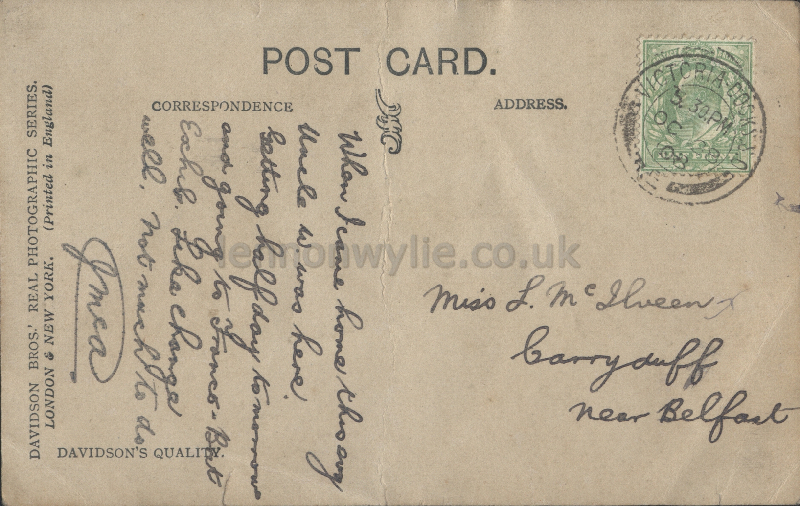 POST CARD.
CORRESPONDENCE
ADDRESS.
VICTORIA DOCK
3. 30 PM
OC
08
DAVIDSON BROS.' REAL PHOTOGRAPHIC SERIES.
LONDON & NEW YORK. (Printed in England)
DAVIDSON'S QUALITY.
When I came home this evg
Uncle W was here.
Getting half day to morrow
and going to Franco-Brit
Exhib. Like change
well. Not much to do
Jmca
Miss L. McIlveen
Carryduff
near Belfast
lennonwylie.co.uk